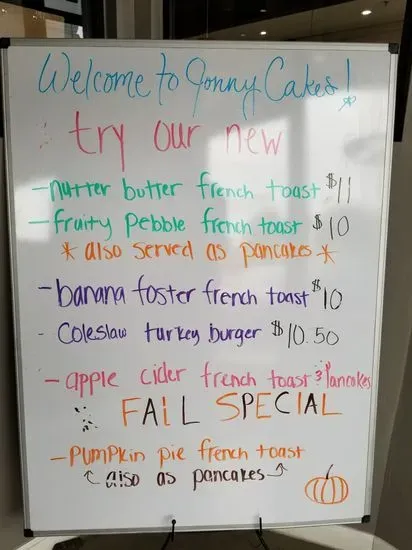 Welcome to Jonny Cakes!
try our new
- nutter butter french toast $11
- fruity pebble french toast $10
* also served as pancakes *
- banana foster french toast $10
- Coleslaw turkey burger $10.50
- apple cider french toast & Pancakes
FAIL SPECIAL
- PUMPKin pie french toast
also as pancakes